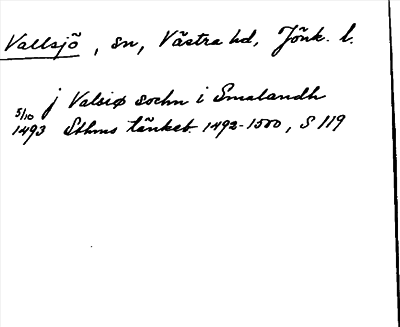 Vallsjö, sn, Västra hd, Jönk. l.
j Valsiø sochn i Smalandh
5/10
1493 Sthms tänkeb. 1492-1500, S 119